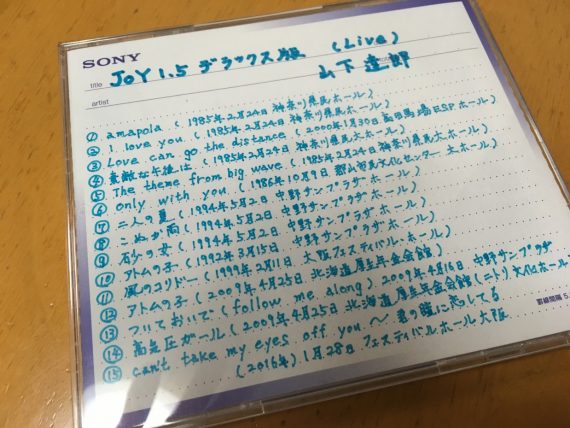 SONY
title JOY 1.5 デラックス版 (Live)
artist 山下達郎
① amapola (1985年2月24日 神奈川県民ホール)
② I love you (1985年2月24日 神奈川県民ホール)
③ Love can go the distance (2000年1月30日 高田馬場ESPホール)
④ 素敵な午後は (1985年2月24日 神奈川県民大ホール)
⑤ The theme from big wave (1985年2月24日 神奈川県民大ホール)
⑥ only with you (1986年10月9日 郡山市民文化センター 大ホール)
⑦ 二人の夏 (1994年5月2日 中野サンプラザホール)
⑧ こぬか雨 (1994年5月2日 中野サンプラザホール)
⑨ 砂の女 (1994年5月2日 中野サンプラザホール)
⑩ アトムの子 (1992年3月15日 中野サンプラザホール)
⑪ 風のコリドー (1999年2月11日 大阪フェスティバル・ホール)
⑫ アトムの子 (2009年4月25日 北海道厚生年金会館)
⑬ ついておいで (follow me along) 2009年4月16日 中野サンプラザ
⑭ 高気圧ガール (2009年4月25日 北海道厚生年金会館 (ニトリ) 文化ホール
⑮ can't take my eyes off you 〜 君の瞳に恋してる
(2016年) 1月28日 フェスティバルホール 大阪
罫線間隔 5.